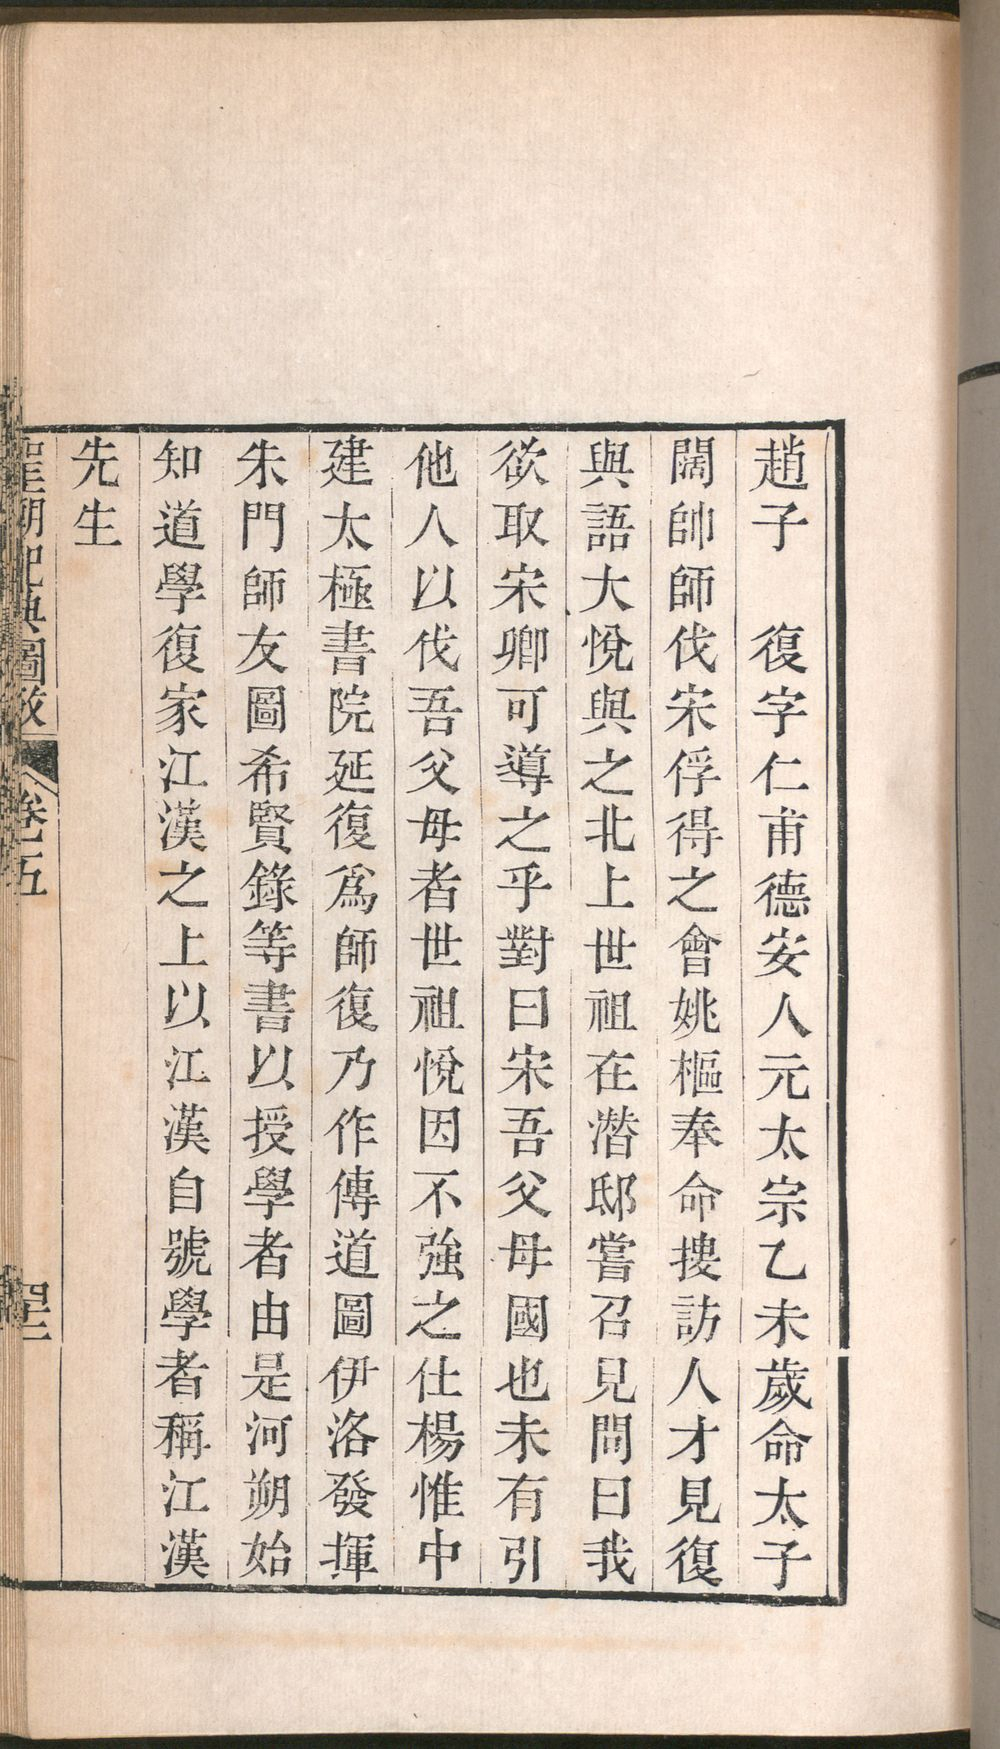 趙子　復字仁甫德安人元太宗乙未歲命太子
闊帥師伐宋俘得之會姚樞奉命摟訪人才見復
與語大悅與之北上世祖在潛邸嘗召見問曰我
欲取宋卿可導之乎對曰宋吾父母國也未有引
他人以伐吾父母者世祖悅因不強之仕楊惟中
建太極書院延復爲師復乃作傳道圖伊洛發揮
朱門師友圖希賢錄等書以授學者由是河朔始
知道學復家江漢之上以江漢自號學者稱江漢
先生
聖朝祀典圖攷　卷五